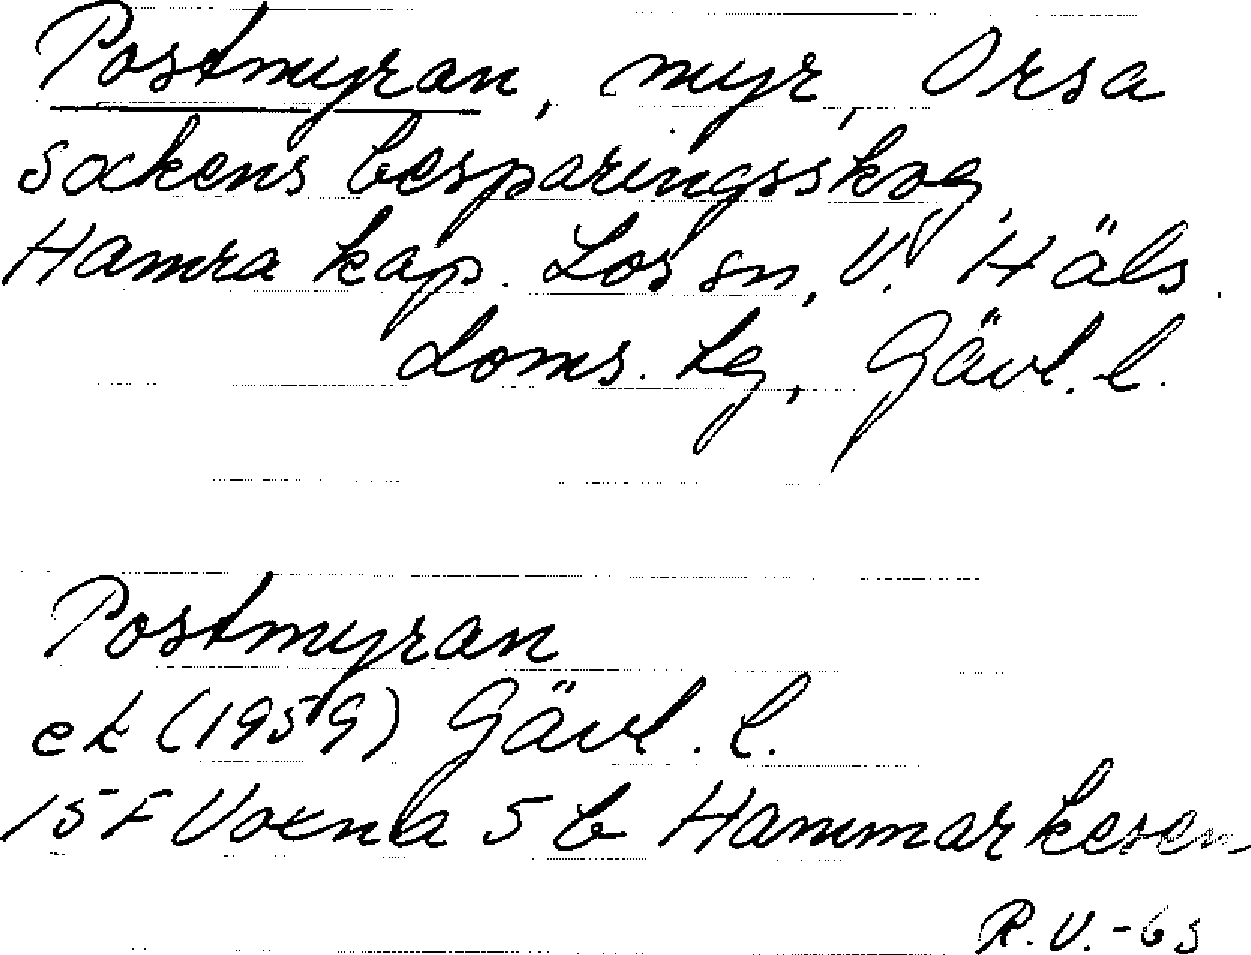 Postmyran, myr, Orsa
sockens besparingsskog,
Hamra kap. Los sn, V. Häls.
doms. lg, Gävl. l.
Postmyran
ek (1959) Gävl. l.
15F Voxna 5 b Hammarkesen
R.V.-63